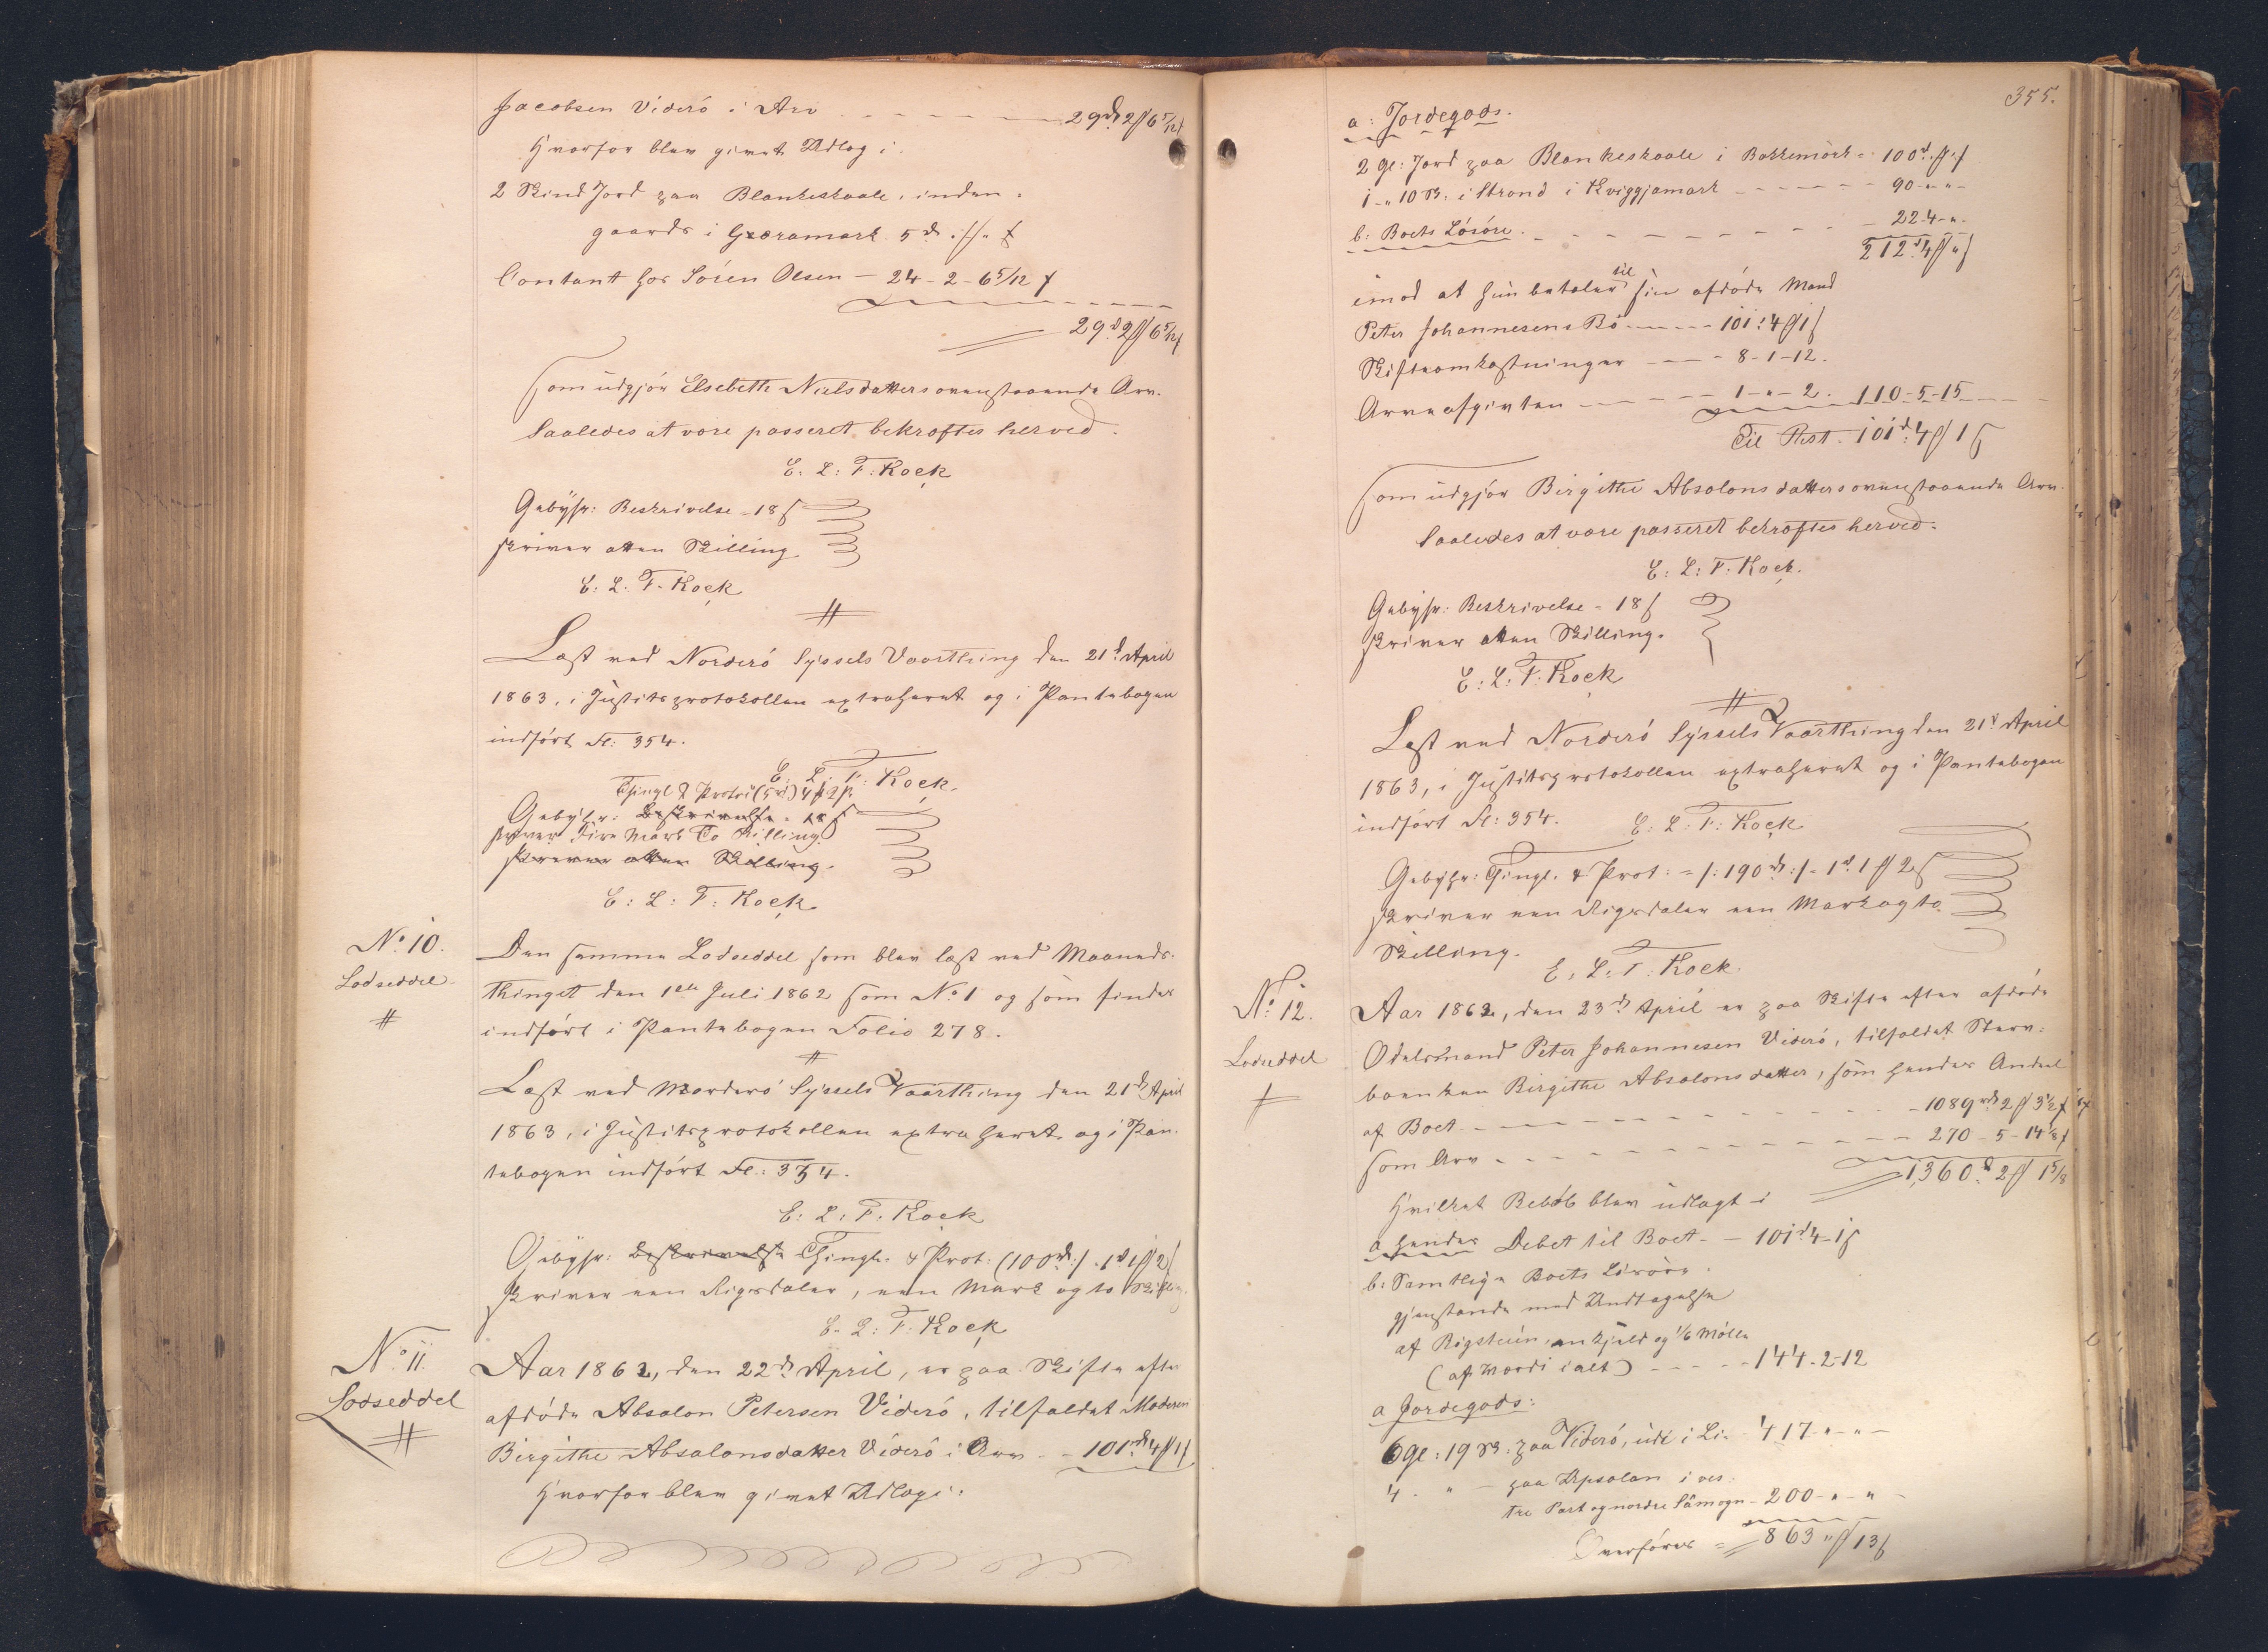 Jacobsen Viderö i Arv - - - - - - 29rd 2 ß 6 5/12 f
Hvorfor blev givet Udlæg i
2 Skind Jord paa Blankeskaale, inden-
gaards i Gæramark 5rd " ß " f
Contant hos Sören Olsen - 24 - 2 - 6 5/12 f
29rd 2 ß 6 5/12 f
som udgjør Elsebeth Nielsdatters ovenstaaende Arv.
Saaledes at være passeret bekræftes herved.
E: L: F: Kock
Gebyhr: Beskrivelse - 18 ß
skriver atten Skilling.
E: L: F. Kock
Læst ved Norderö Syssels Vaarthing den 21d April
1863, i Justitsprotokollen extraheret og i Pantebogen
indfört Fl: 354.
E: L: F: Kock.
Thingl & Protoc (5rd) 4 ß 2 ß.
Gebyhr: Beskrivelse - 18 ß
skriver Fire Mark To Skilling
skriver atten Skilling.
E: L: F: Kock
No 10.
Lodseddel.
Den samme Lodseddel som blev læst ved Maaneds-
thinget den 1ste Juli 1862 som No 1 og som findes
indfört i Pantebogen Folio 278.
Læst ved Norderö Syssels Vaarthing den 21d April
1863, i Justitsprotokollen extraheret og i Pan-
tebogen indfört Fl: 354.
E: L: F: Kock
Gebyhr: Beskrivelse Thingl. & Prot: (100rd:/. 1rd 1 ß 2 ß
skriver een Rigsdaler, een Mark og to Skilling.
E. L: F: Kock
No 11.
Lodseddel
Aar 1862, den 22d April, er paa Skifte efter
afdöde Absalon Petersen Viderö, tilfaldet Moderen
Birgithe Absalonsdatter Viderö i Arv - - 101rd 4 ß 1 ß
Hvorfor blev givet Udlæg i:
355.
a: Jordegods.
2 Gl: Jord paa Blankeskaale i Bakkemark - 100rd " ß " f
1 - " 10 Sk. i Strond i Kviggjamark - - - - 90 - " - " -
b: Boets Lösöre. - - - - - - 22 - 4 - " -
212rd 4 ß " f
imod at hun betaler til sin afdöde Mand
Peter Johannesens Bo - - - - 101rd 4 ß 1 ß
Skifteomkostninger - - - - 8 - 1 - 12.
Arveafgiften - - - - - 1 - " - 2. 110 - 5 - 15
Til Rest. 101rd 4 ß 1 ß
som udgjør Birgithe Absolonsdatters ovenstaaende Arv.
Saaledes at være passeret bekræftes herved.
E: L: F. Kock.
Gebyhr: Beskrivelse - 18 ß
skriver atten Skilling.
E: L: F. Kock
Læst ved Norderö Syssels Vaarthing den 21d April
1863, i Justitsprotokollen extraheret og i Pantebogen
indfört Fl: 354. E: L: F: Kock
Gebyhr: Thingl. & Prot: - /: 190rd :/ - 1rd 1 ß 2 ß
skriver een Rigsdaler een Mark og to
Skilling.
E. L: F: Kock.
No 12.
Lodseddel
Aar 1862, den 23d April er paa Skifte efter afdöde
Odelsmand Peter Johannesen Viderö, tilfaldet Sterv-
boenken Birgithe Absolonsdatter, som hendes Andeel
af Boet - - - - - - - 1089rd 2 ß 3 1/2 f
som Arv - - - - - - - 270 - 5 - 14 1/8 f
1,360rd 2 ß 1 5/8
Hvilket Belöb blev udlagt i
a hendes Debet til Boet - - 101rd 4 - 1 ß
b: Samtlige Boets Lösöre-
gjenstande med Undtagelse
af Rögsteen, en Kjeld og 1/6 Mölle
(af Værdi i alt) - - - - 144 - 2 - 12
a Jordegods:
6 Gl: 19 Sk: paa Viderö, ude i Li - 417 - " - " -
4 - " - paa Upsalen i ves-
tre Part og nordre Såmogn - 200 - " - " -
Overföres = 863 " ß 13 ß